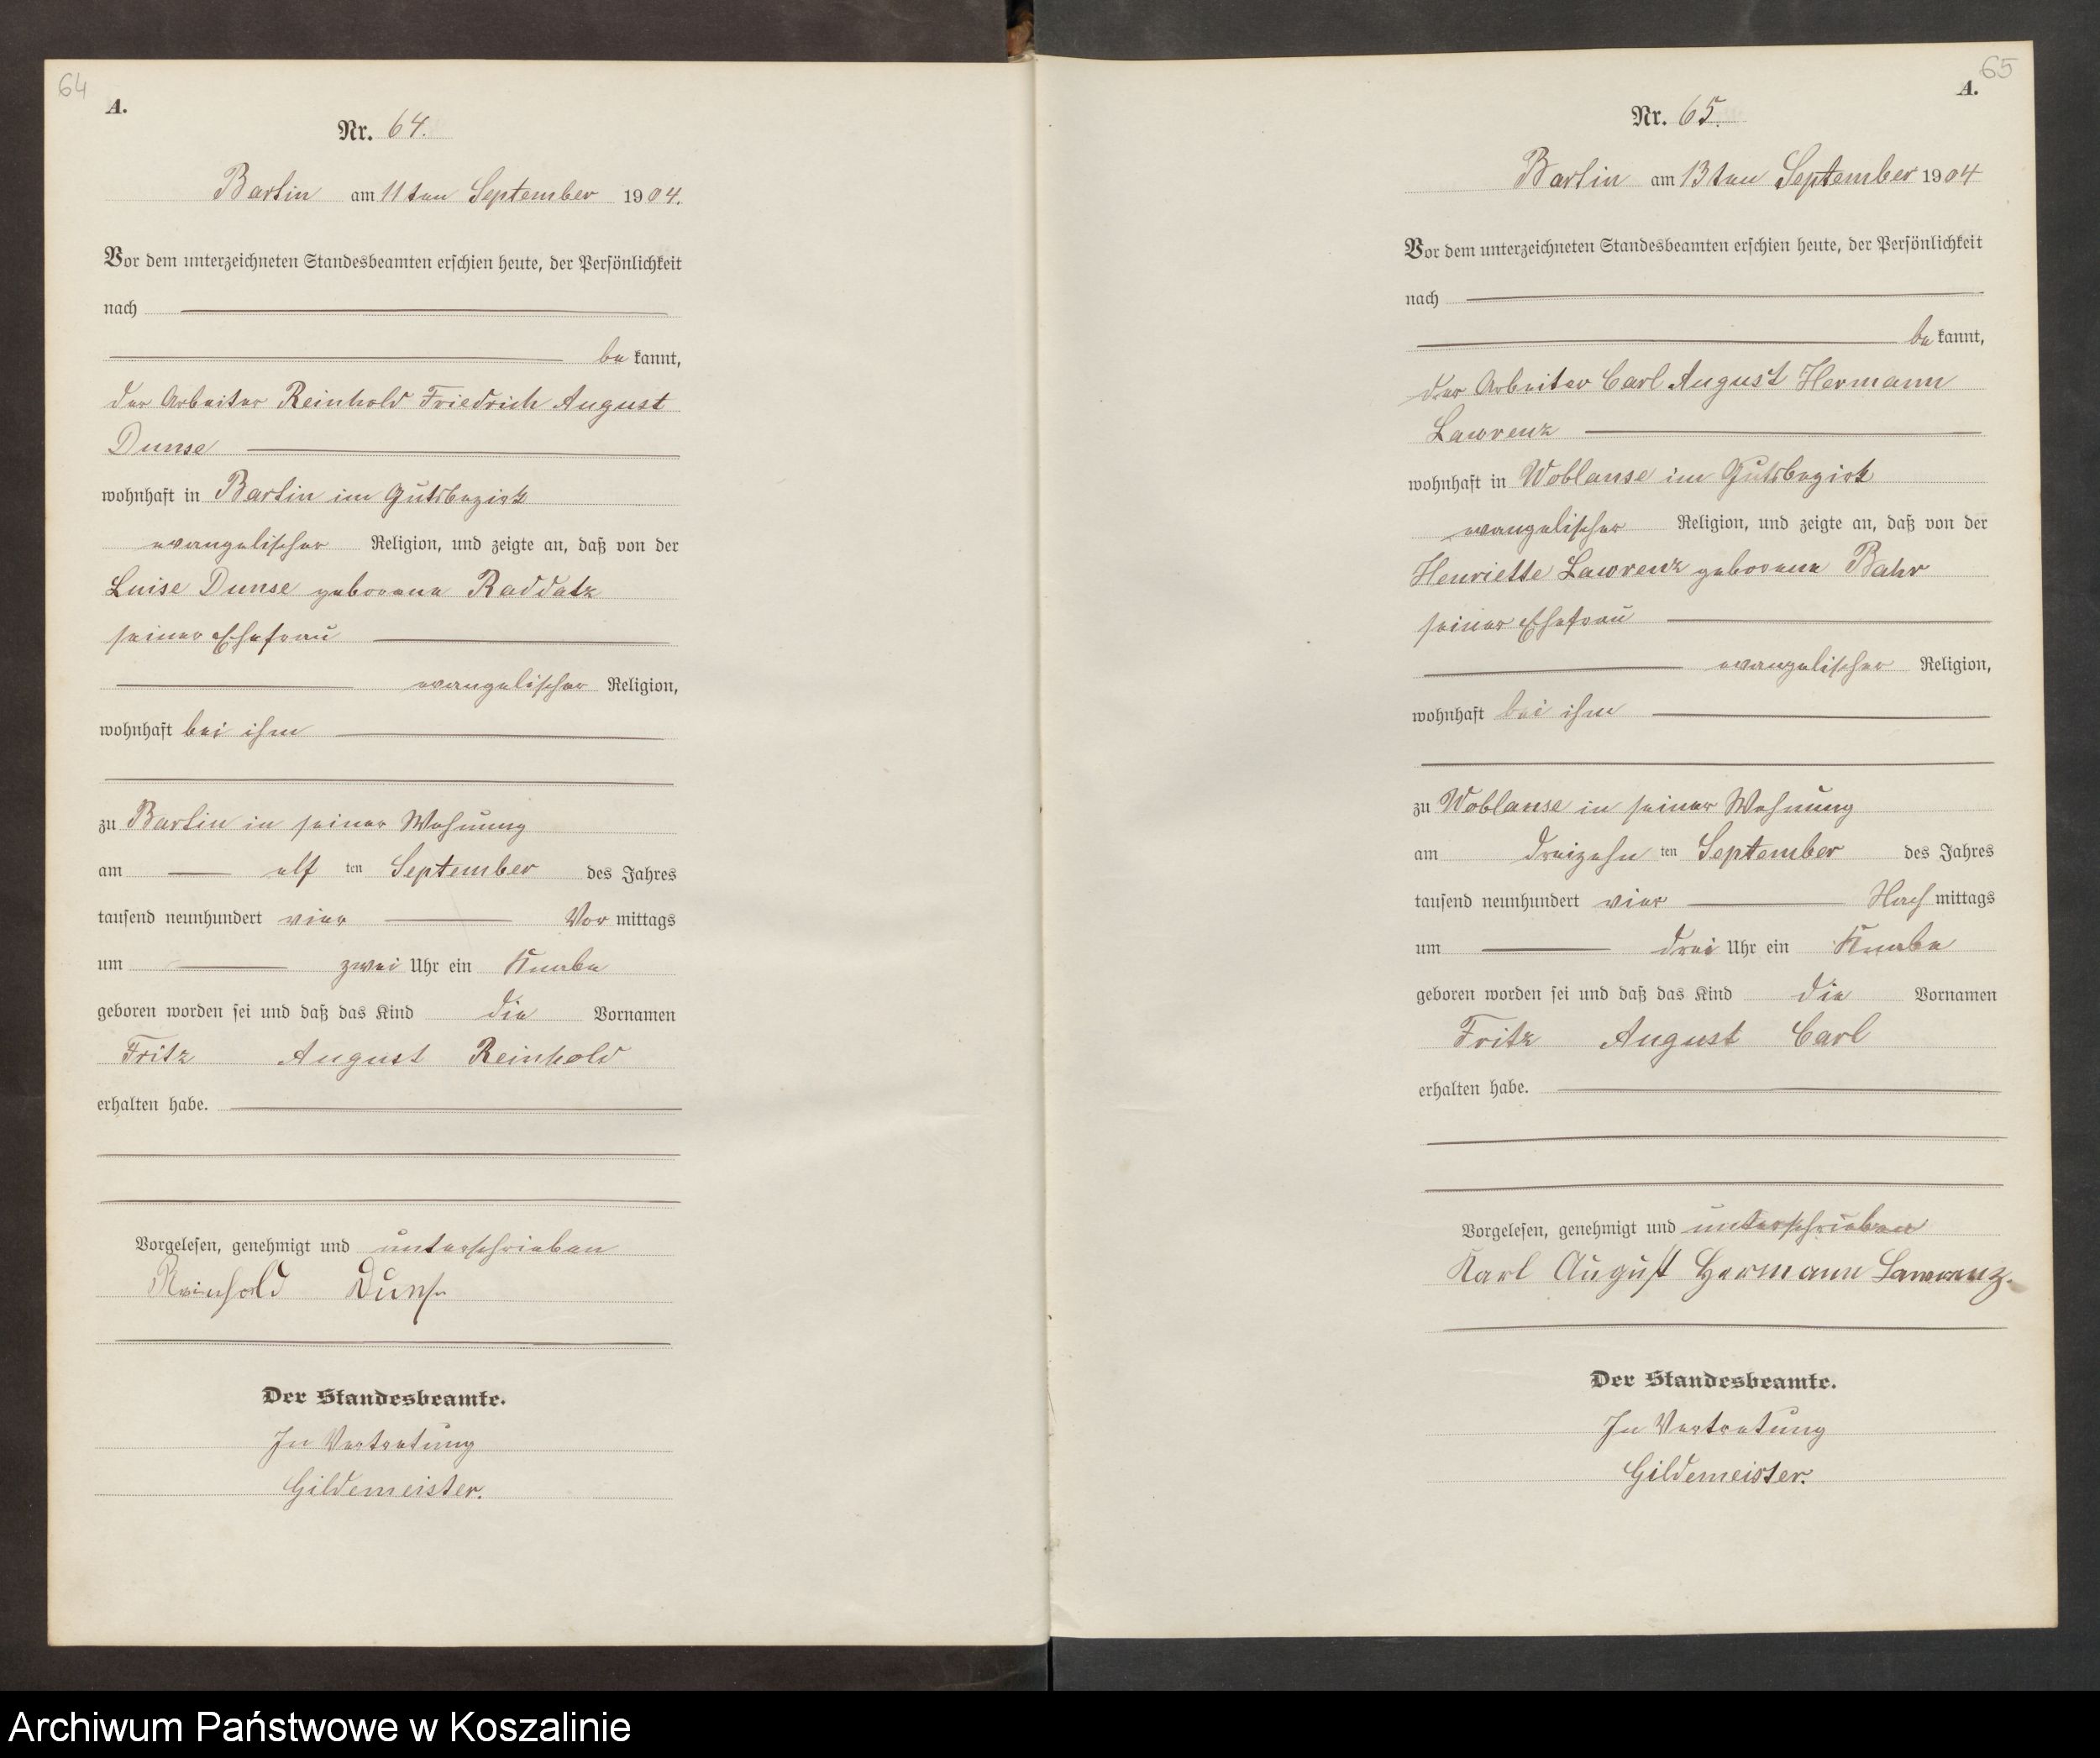 64
A.
Nr. 64.
Bartin am 11ten September 1904.
Vor dem unterzeichneten Standesbeamten erschien heute, der Persönlichkeit
nach
be kannt,
der Arbeiter Reinhold Friedrich August
Dunse
wohnhaft in Bartin im Gutsbezirk
evangelischer Religion, und zeigte an, daß von der
Luise Dunse geborene Raddatz
seiner Ehefrau
evangelischer Religion,
wohnhaft bei ihm
zu Bartin in seiner Wohnung
am elf ten September des Jahres
tausend neunhundert vier Vor mittags
um zwei Uhr ein Knabe
geboren worden sei und daß das Kind die Vornamen
Fritz August Reinhold
erhalten habe.
Vorgelesen, genehmigt und unterschrieben
Reinhold Dunse
Der Standesbeamte.
In Vertretung
Gildemeister.
65
A.
Nr. 65.
Bartin am 13ten September 1904
Vor dem unterzeichneten Standesbeamten erschien heute, der Persönlichkeit
nach
be kannt,
der Arbeiter Carl August Hermann
Lawrenz
wohnhaft in Woblanse im Gutsbezirk
evangelischer Religion, und zeigte an, daß von der
Henriette Lawrenz geborene Bahr
seiner Ehefrau
evangelischer Religion,
wohnhaft bei ihm
zu Woblanse in seiner Wohnung
am dreizehn ten September des Jahres
tausend neunhundert vier Nach mittags
um drei Uhr ein Knabe
geboren worden sei und daß das Kind die Vornamen
Fritz August Carl
erhalten habe.
Vorgelesen, genehmigt und unterschrieben
Karl August Hermann Lawrenz.
Der Standesbeamte.
In Vertretung
Gildemeister.
Archiwum Państwowe w Koszalinie